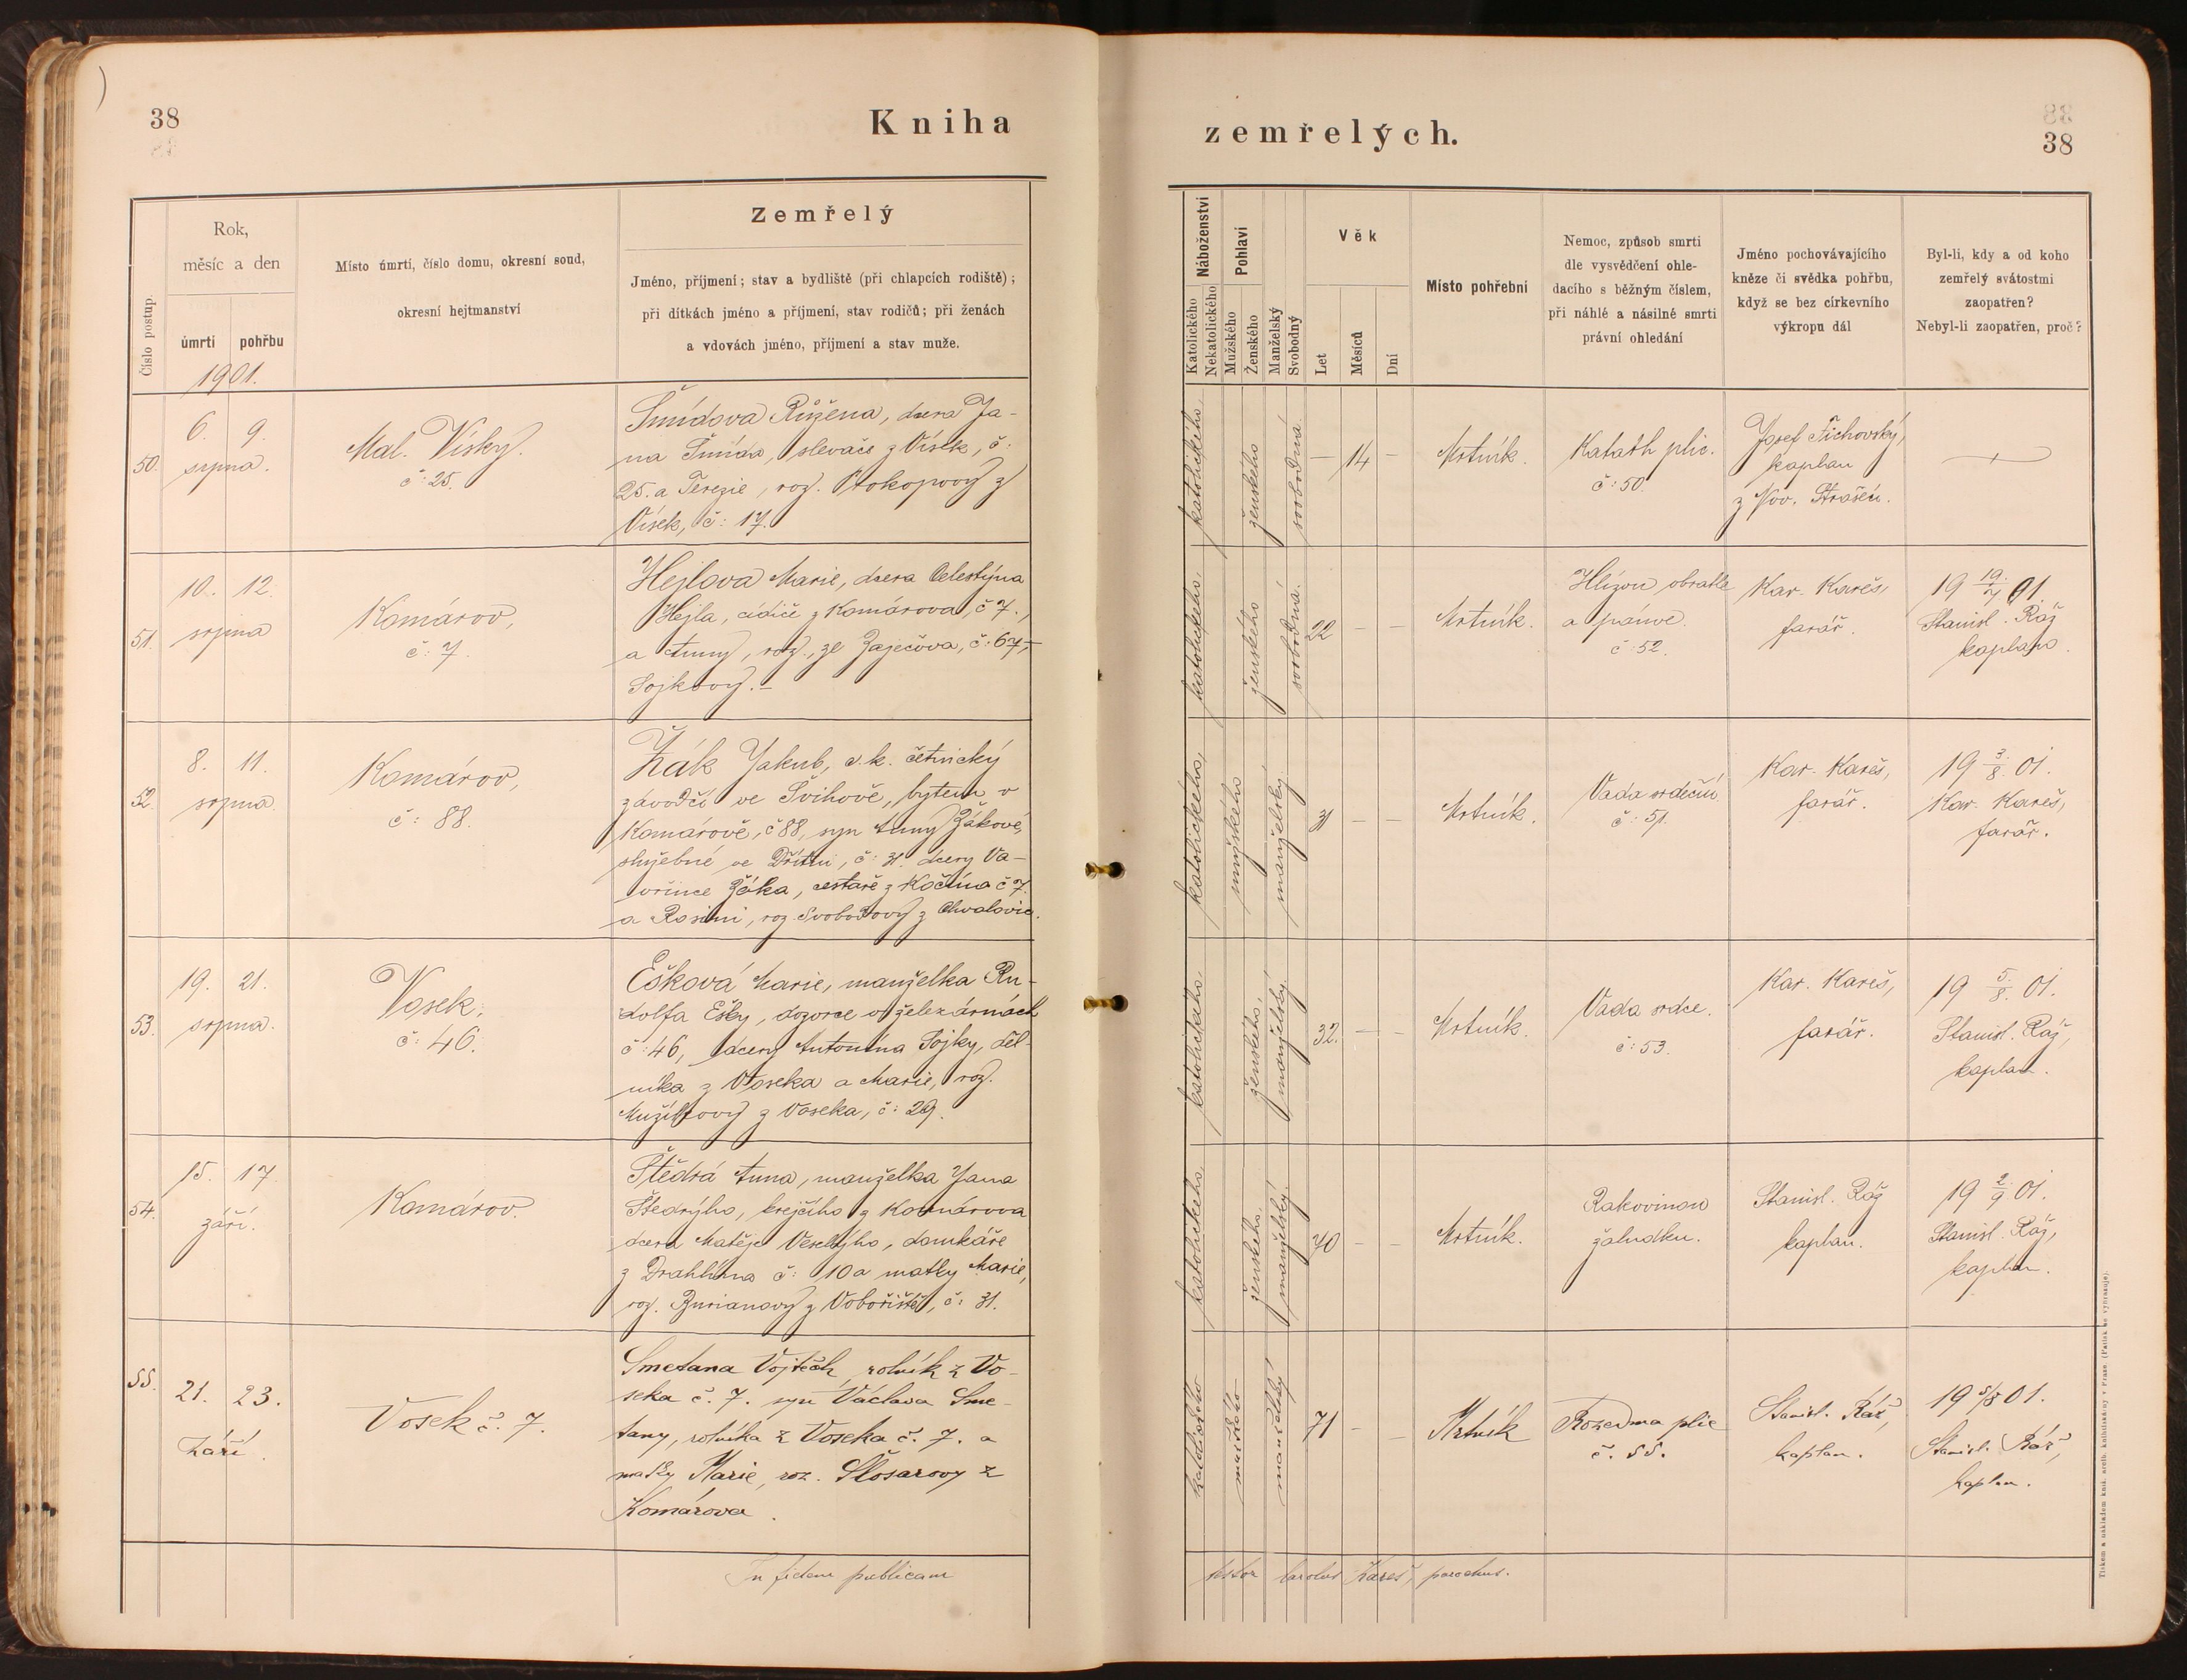 38
Kniha
Číslo postup.
Rok,
měsíc a den
úmrtí
pohřbu
1901.
Místo úmrtí, číslo domu, okresní soud,
okresní hejtmanství
Zemřelý
Jméno, příjmení; stav a bydliště (při chlapcích rodiště);
při dítkách jméno a příjmení, stav rodičů; při ženách
a vdovách jméno, příjmení a stav muže.
50.
6. 9.
srpna.
Mal. Vísky.
č: 25.
Šmídova Růžena, dcera Ja-
na Šmída, slevače z Vísek, č:
25. a Terezie, roz. Prokopovy z
Vísek, č: 17.
51.
10. 12.
srpna
Komárov,
č: 7.
Hejlova Marie, dcera Celestýna
Hejla, cídiče z Komárova, č 7.,
a Anny, roz., ze Zaječova, č: 67,
Sojkovy.-
52.
8. 11.
srpna.
Komárov,
č: 88.
Žák Jakub, c.k. četnický
závodčí ve Švihově, bytem v
Komárově, č 88, syn Anny Žákové,
služebné ve Dřítni, č: 31. dcery Va-
vřince Žáka, cestáře z Kočína č 7.
a Rosiny, roz. Svobodovy z Chvalovic.
53.
19. 21.
srpna.
Vosek,
č: 46.
Ešková Marie, manželka Ru-
dolfa Ešky, dozorce v železárnách
č: 46, dcery Antonína Sojky, děl-
níka z Voseka a Marie, roz.
Mužíkovy z Voseka, č: 29.
54.
15. 17.
září.
Komárov.
Štědrá Anna, manželka Jana
Štedrýho, krejčího z Komárova
dcera Matěje Veselýho, domkáře
z Drahlína č: 10 a matky Marie,
roz. Burianovy z Vobořiště, č: 31.
55.
21. 23.
září.
Vosek č. 7.
Smetana Vojtěch, rolník z Vo-
seka č. 7. syn Václava Sme-
tany, rolníka z Voseka č. 7. a
matky Marie, roz. Šlosarovy z
Komárova.
In fidem publicam
zemřelých.
38
Náboženství
Katolického
Nekatolického
Pohlaví
Mužského
Ženského
Manželský
Svobodný
Věk
Let
Měsíců
Dní
Místo pohřební
Nemoc, způsob smrti
dle vysvědčení ohle-
dacího s běžným číslem,
při náhlé a násilné smrti
právní ohledání
Jméno pochovávajícího
kněze či svědka pohřbu,
když se bez církevního
výkropu dál
Byl-li, kdy a od koho
zemřelý svátostmi
zaopatřen?
Nebyl-li zaopatřen, proč?
katolického,
ženského
svobodná.
— 14 —
Mrtník.
Katarh plic.
č: 50.
Josef Tichovský,
kaplan
z Nov. Strašecí.
katolického,
ženského
svobodná.
22 — —
Mrtník.
Hlízou obratle
a pánve.
č: 52.
Kar. Kareš,
farář.
19 19/7 01.
Stanisl. Ráž
kaplan.
katolického,
mužského
manželský.
31 — —
Mrtník.
Vada srdeční
č: 51.
Kar. Kareš,
farář.
19 3/8. 01.
Kar. Kareš,
farář.
katolického,
ženského,
manželský.
32. — —
Mrtník.
Vada srdce.
č: 53.
Kar. Kareš,
farář.
19 5/8. 01.
Stanisl. Ráž,
kaplan.
katolického,
ženského,
manželský.
40 — —
Mrtník.
Rakovinou
žaludku.
Stanisl. Ráž
kaplan.
19 2/9 01.
Stanisl. Ráž,
kaplan.
katolického
mužského
manželský
71 — —
Mrtník
Rozedma plic
č. 55.
Stanisl. Ráž,
kaplan.
19 5/8 01.
Stanisl. Ráž,
kaplan.
testor Carolus Kareš, parochus.